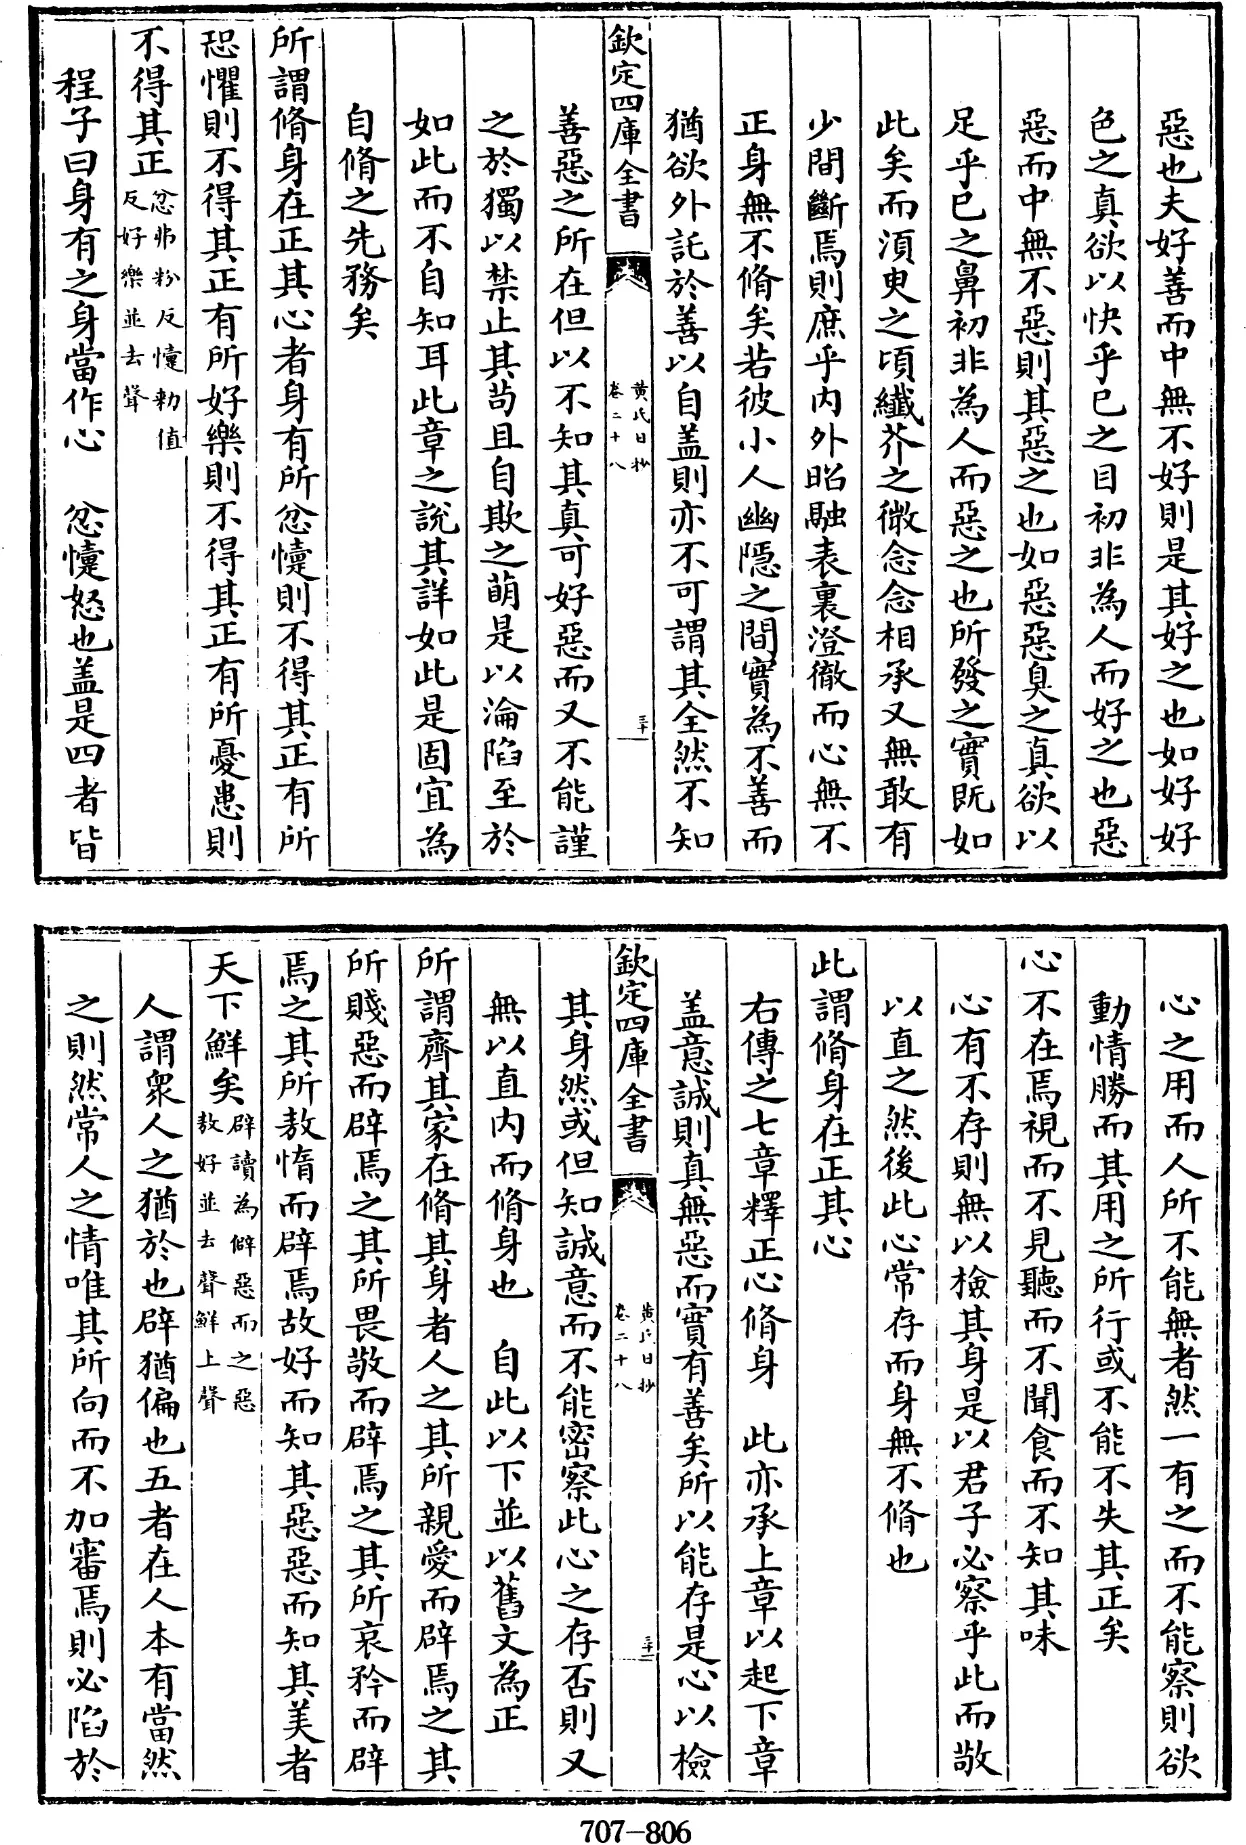 惡也夫好善而中無不好則是其好之也如好好
色之真欲以快乎已之目初非為人而好之也惡
惡而中無不惡則其惡之也如惡惡臭之真欲以
足乎已之鼻初非為人而惡之也所發之實既如
此矣而湏臾之頃纖芥之微念念相承又無敢有
少間斷焉則庶乎内外昭融表裏澄徹而心無不
正身無不脩矣若彼小人幽隠之間實為不善而
猶欲外託於善以自盖則亦不可謂其全然不知
欽定四庫全書
黄氏日抄
卷二十八
三十一
善惡之所在但以不知其真可好惡而又不能謹
之於獨以禁止其茍且自欺之萌是以淪陷至於
如此而不自知耳此章之說其詳如此是固宜為
自脩之先務矣
所謂脩身在正其心者身有所忿懥則不得其正有所
恐懼則不得其正有所好樂則不得其正有所憂患則
不得其正忿弗粉反懥勅值
反好樂並去聲
程子曰身有之身當作心　忿懥怒也盖是四者皆
心之用而人所不能無者然一有之而不能察則欲
動情勝而其用之所行或不能不失其正矣
心不在焉視而不見聽而不聞食而不知其味
心有不存則無以檢其身是以君子必察乎此而敬
以直之然後此心常存而身無不脩也
此謂脩身在正其心
右傳之七章釋正心脩身　此亦承上章以起下章
盖意誠則真無惡而實有善矣所以能存是心以檢
欽定四庫全書
黄氏日抄
卷二十八
三十二
其身然或但知誠意而不能密察此心之存否則又
無以直内而脩身也　自此以下並以舊文為正
所謂齊其家在脩其身者人之其所親愛而辟焉之其
所賤惡而辟焉之其所畏敬而辟焉之其所哀矜而辟
焉之其所敖惰而辟焉故好而知其惡惡而知其美者
天下鮮矣辟讀為僻惡而之惡
敖好並去聲鮮上聲
人謂衆人之猶於也辟猶偏也五者在人本有當然
之則然常人之情唯其所向而不加審焉則必陷於
707-806